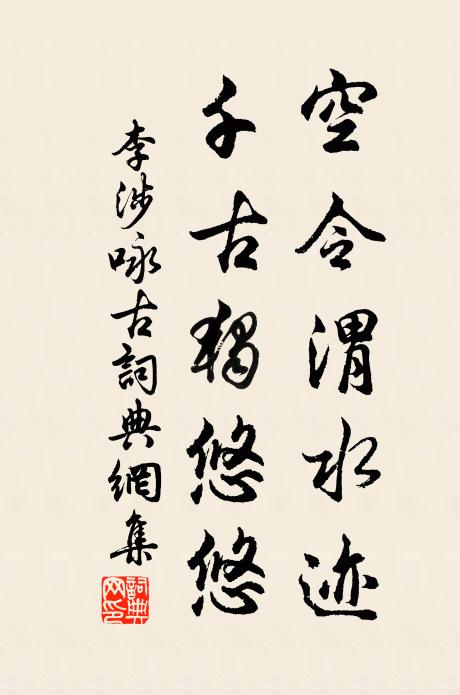 空令渭水迹
千古独悠悠
李涉咏古詞典網集
詞典
网印